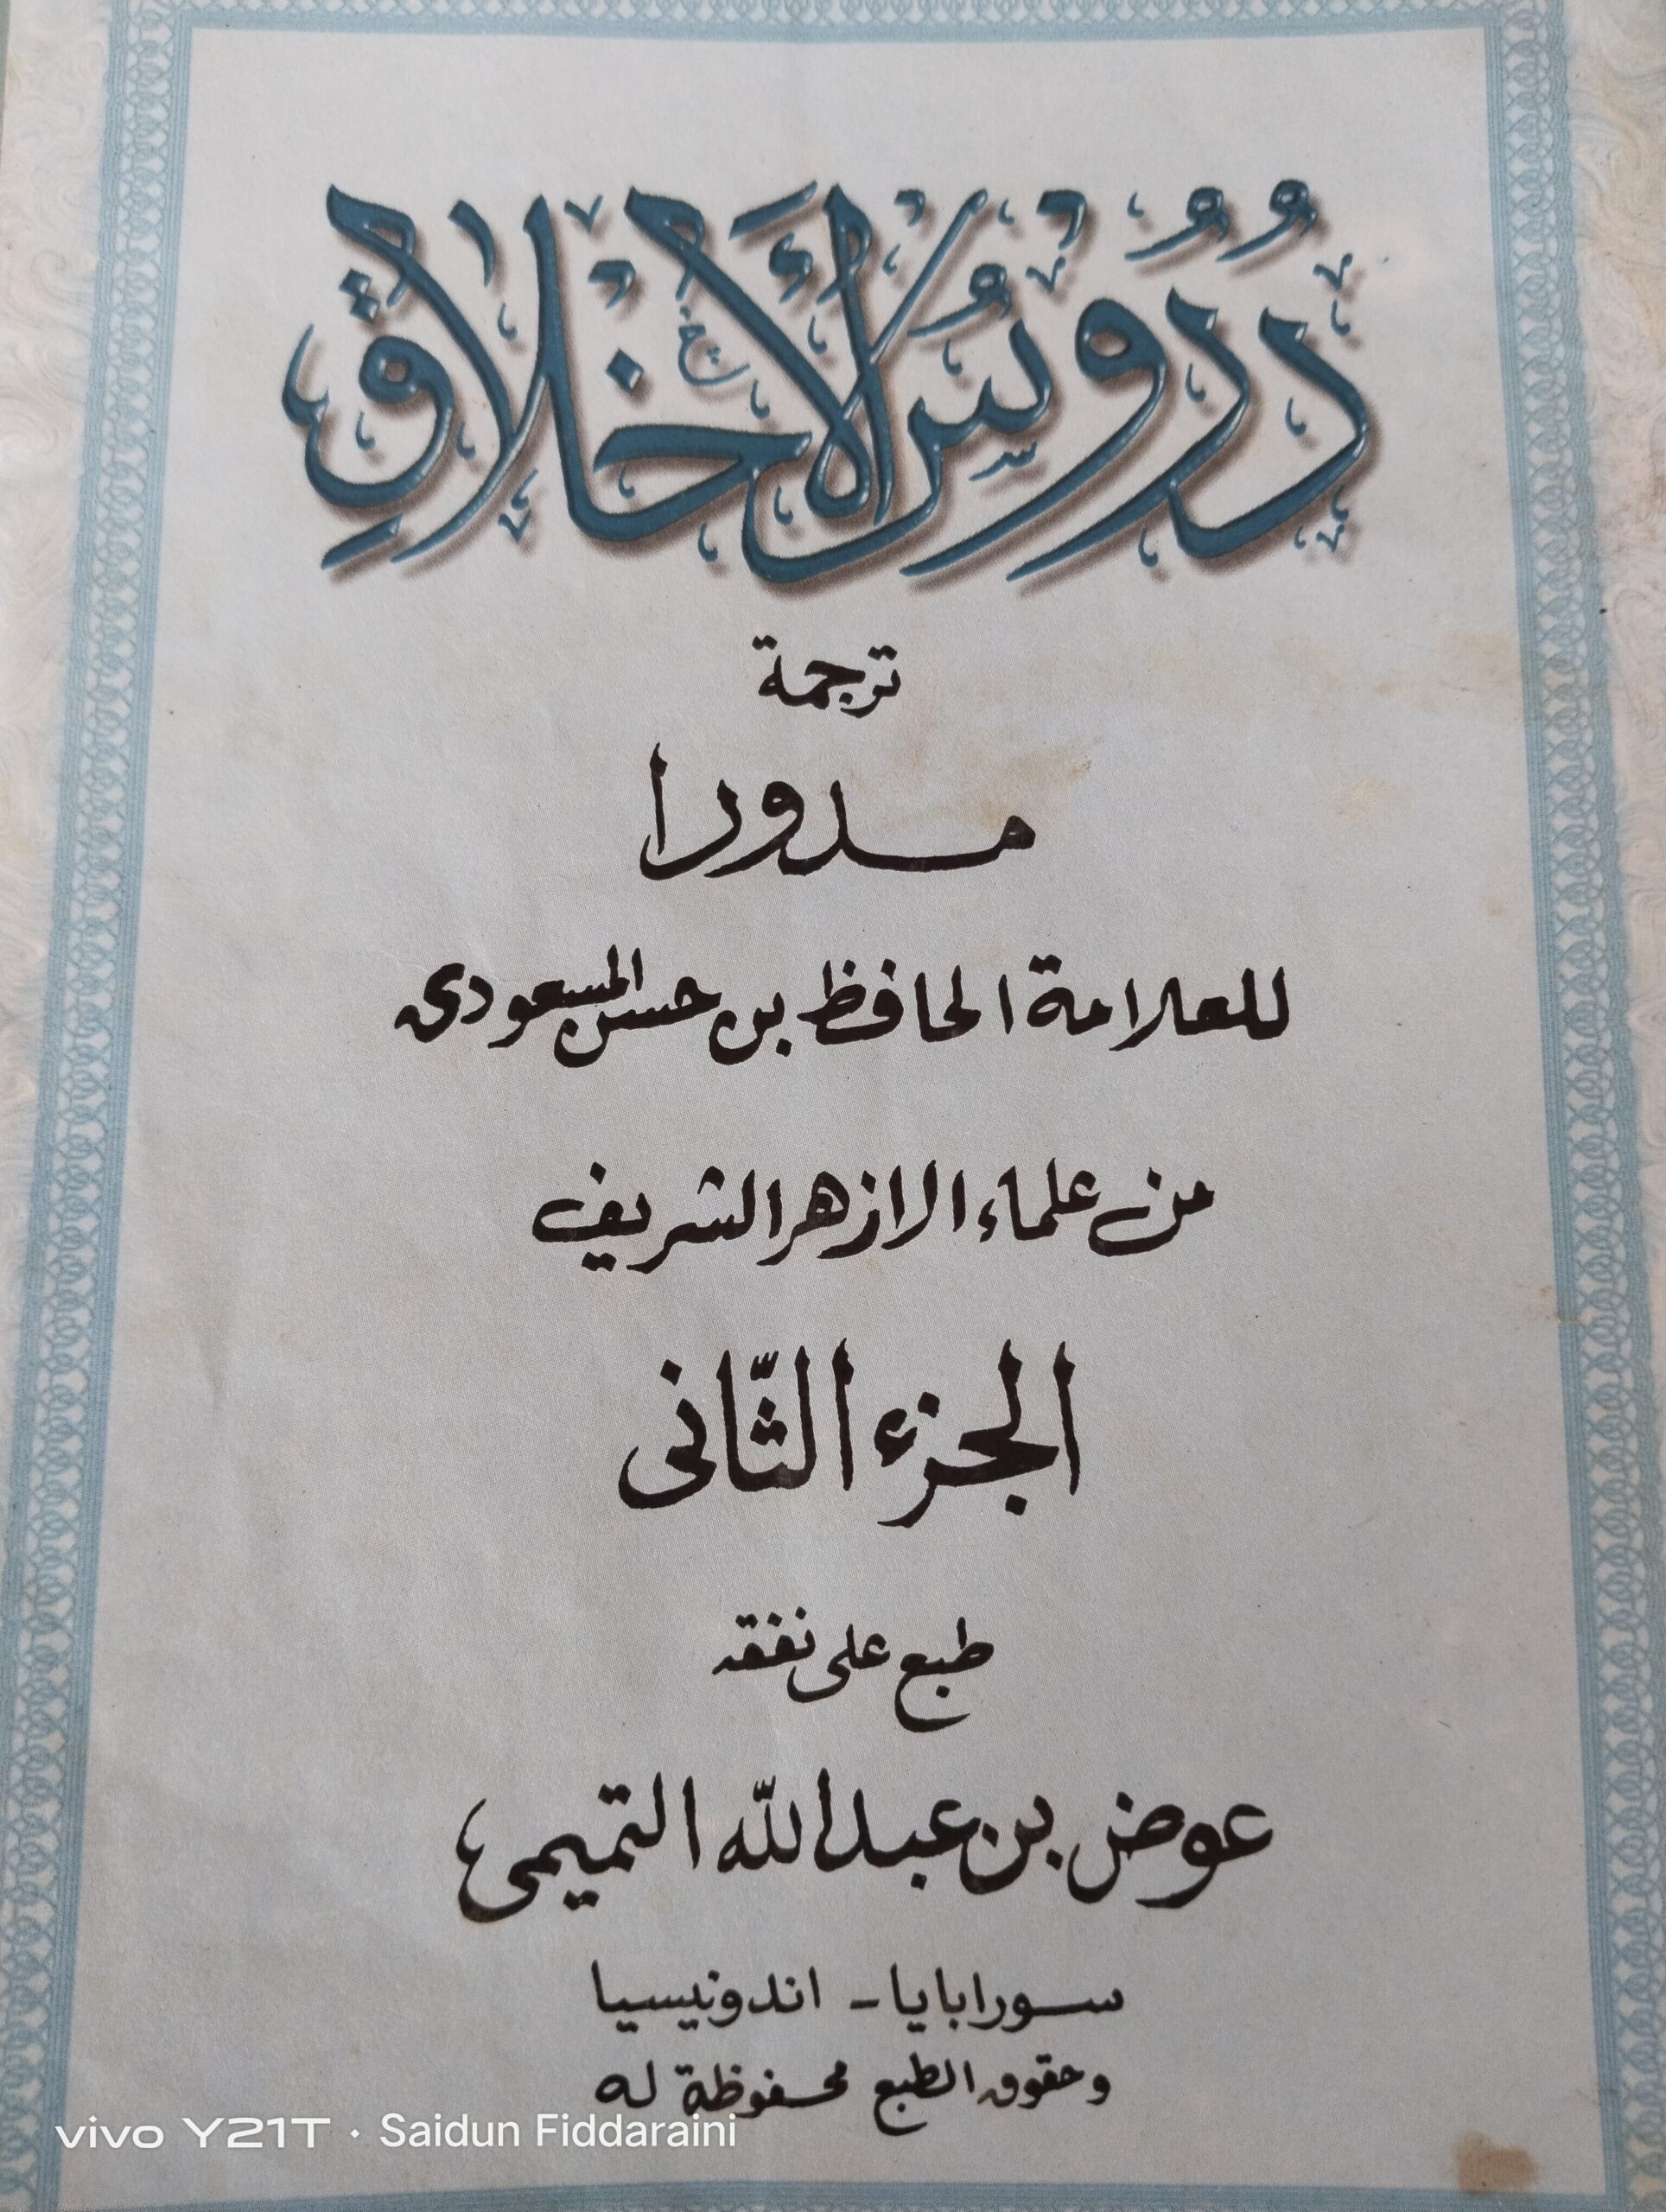 دُرُوْسُ الْأَخْلَاقِ
ترجمة
مدورا
للعلامة الحافظ بن حسن المسعودى
من علماء الازهر الشريف
الجزء الثّانى
طبع على نفقة
عوض بن عبد اللّه التميمى
سورابايا - اندونيسيا
وحقوق الطبع محفوظة له
vivo Y21T · Saidun Fiddaraini